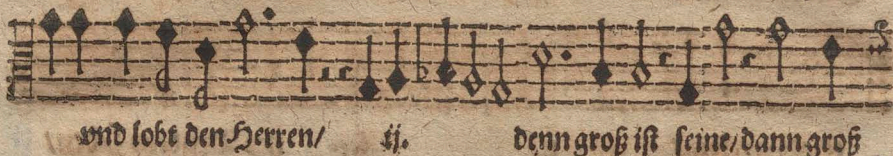 vnd lobt den Herren/ ij. denn groß ist seine/ dann groß